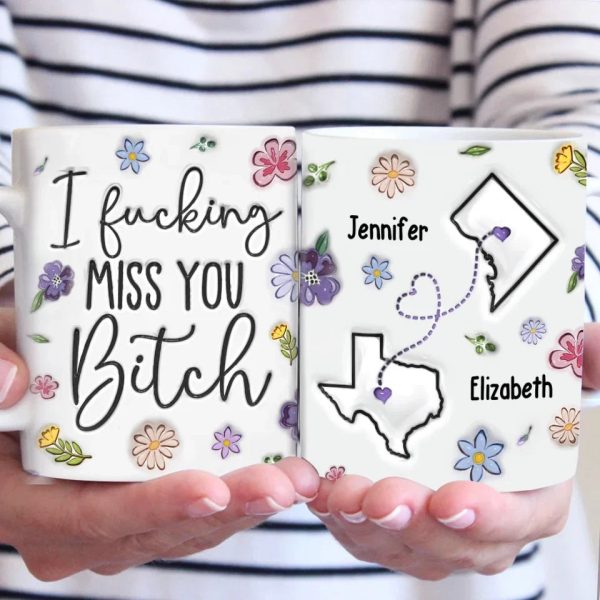 I fucking
MISS YOU
Bitch
Jennifer
Elizabeth